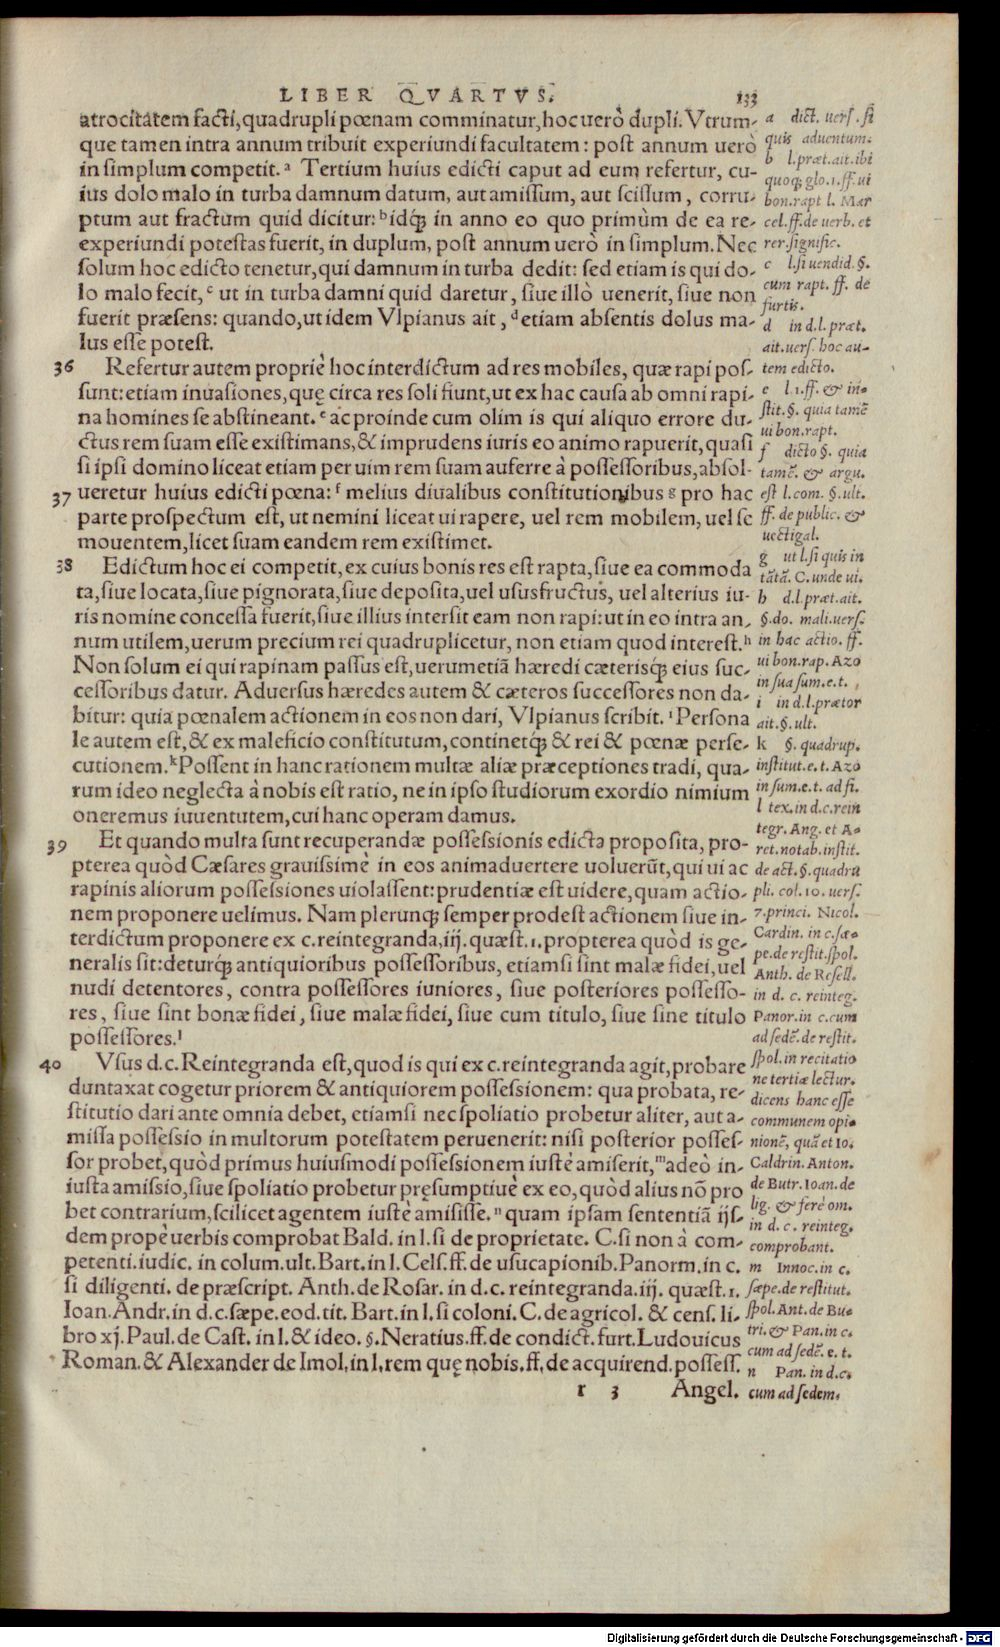 LIBER QVARTVS. 133
atrocitatem facti, quadrupli pœnam comminatur, hoc uerò dupli. Vtrum-
que tamen intra annum tribuit experiundi facultatem: post annum uerò
in simplum competit.ᵃ Tertium huius edicti caput ad eum refertur, cu-
ius dolo malo in turba damnum datum, aut amissum, aut scissum, corru-
ptum aut fractum quid dicitur:ᵇ idq́; in anno eo quo primùm de ea re-
experiundi potestas fuerit, in duplum, post annum uerò in simplum. Nec
solum hoc edicto tenetur, qui damnum in turba dedit: sed etiam is qui do-
lo malo fecit,ᶜ ut in turba damni quid daretur, siue illò uenerit, siue non
fuerit præsens: quando, ut idem Vlpianus ait,ᵈ etiam absentis dolus ma-
lus esse potest.
36 Refertur autem propriè hoc interdictum ad res mobiles, quæ rapi pos-
sunt: etiam inuasiones, quę circa res soli fiunt, ut ex hac causa ab omni rapi-
na homines se abstineant.ᵉ ac proinde cum olim is qui aliquo errore du-
ctus rem suam esse existimans, & imprudens iuris eo animo rapuerit, quasi
si ipsi domino liceat etiam per uim rem suam auferre à possessoribus, absol-
37 ueretur huius edicti pœna:ᶠ melius diualibus constitutionibus ᵍ pro hac
parte prospectum est, ut nemini liceat ui rapere, uel rem mobilem, uel se
mouentem, licet suam eandem rem existimet.
38 Edictum hoc ei competit, ex cuius bonis res est rapta, siue ea commoda
ta, siue locata, siue pignorata, siue deposita, uel ususfructus, uel alterius iu-
ris nomine concessa fuerit, siue illius intersit eam non rapi: ut in eo intra an-
num utilem, uerum precium rei quadruplicetur, non etiam quod interest.ʰ
Non solum ei qui rapinam passus est, uerumetiã hæredi cæterisq́; eius suc-
cessoribus datur. Aduersus hæredes autem & cæteros successores non da-
bitur: quia pœnalem actionem in eos non dari, Vlpianus scribit.ⁱ Persona
le autem est, & ex maleficio constitutum, continetq́; & rei & pœnæ perse-
cutionem.ᵏ Possent in hanc rationem multæ aliæ præceptiones tradi, qua-
rum ideo neglecta à nobis est ratio, ne in ipso studiorum exordio nimium
oneremus iuuentutem, cui hanc operam damus.
39 Et quando multa sunt recuperandæ possessionis edicta proposita, pro-
pterea quòd Cæsares grauissimè in eos animaduertere uoluerũt, qui ui ac
rapinis aliorum possessiones uiolassent: prudentiæ est uidere, quam actio-
nem proponere uelimus. Nam plerunq́; semper prodest actionem siue in-
terdictum proponere ex c. reintegranda, iij. quæst. 1. propterea quòd is ge-
neralis sit: deturq́; antiquioribus possessoribus, etiamsi sint malæ fidei, uel
nudi detentores, contra possessores iuniores, siue posteriores possesso-
res, siue sint bonæ fidei, siue malæ fidei, siue cum titulo, siue sine titulo
possessores.ˡ
40 Vsus d. c. Reintegranda est, quod is qui ex c. reintegranda agit, probare
duntaxat cogetur priorem & antiquiorem possessionem: qua probata, re-
stitutio dari ante omnia debet, etiamsi nec spoliatio probetur aliter, aut a-
missa possessio in multorum potestatem peruenerit: nisi posterior posses-
sor probet, quòd primus huiusmodi possessionem iustè amiserit,ᵐ adeò in-
iusta amissio, siue spoliatio probetur pręsumptiuè ex eo, quòd alius nõ pro
bet contrarium, scilicet agentem iustè amisisse.ⁿ quam ipsam sententiã ijs-
dem propè uerbis comprobat Bald. in l. si de proprietate. C. si non à com-
petenti. iudic. in colum. ult. Bart. in l. Cels. ff. de usucapionib. Panorm. in c.
si diligenti. de præscript. Anth. de Rosar. in d. c. reintegranda. iij. quæst. 1.
Ioan. Andr. in d. c. sæpe. eod. tit. Bart. in l. si coloni. C. de agricol. & cens. li-
bro xj. Paul. de Cast. in l. & ideo. §. Neratius. ff. de condict. furt. Ludouicus
Roman. & Alexander de Imol. in l. rem quę nobis. ff. de acquirend. possess.
r 3 Angel.
a dict. uers. si
quis aduentum.
b l. præt. ait. ibi
quoq; glo. 1. ff. ui
bon. rapt l. Mar
cel. ff. de uerb. et
rer. signific.
c l. si uendid. §.
cum rapt. ff. de
furtis.
d in d. l. præt.
ait. uers. hoc au-
tem edicto.
e l. 1. ff. & in-
stit. §. quia tamẽ
ui bon. rapt.
f dicto §. quia
tamẽ. & argu.
est l. com. §. ult.
ff. de public. &
uectigal.
g ut l. si quis in
tãtã. C. unde ui.
h d. l. præt. ait.
§. do. mali. uers.
in hac actio. ff.
ui bon. rap. Azo
in sua sum. e. t.
i in d. l. prætor
ait. §. ult.
k §. quadrup.
institut. e. t. Azo
in sum. e. t. ad fi.
l tex. in d. c. rein
tegr. Ang. et A-
ret. notab. instit.
de act. §. quadru
pli. col. 10. uers.
7. princi. Nicol.
Cardin. in c. sæ-
pe. de restit. spol.
Anth. de Rosell.
in d. c. reinteg.
Panor. in c. cum
ad sedẽ. de restit.
spol. in recitatio
ne tertiæ lectur.
dicens hanc esse
communem opi-
nionẽ, quã et Io.
Caldrin. Anton.
de Butr. Ioan. de
lig. & ferè om.
in d. c. reinteg.
comprobant.
m Innoc. in c.
sæpe. de restitut.
spol. Ant. de Bu-
tri. & Pan. in c.
cum ad sedẽ. e. t.
n Pan. in d. c.
cum ad sedem.
Digitalisierung gefördert durch die Deutsche Forschungsgemeinschaft - DFG